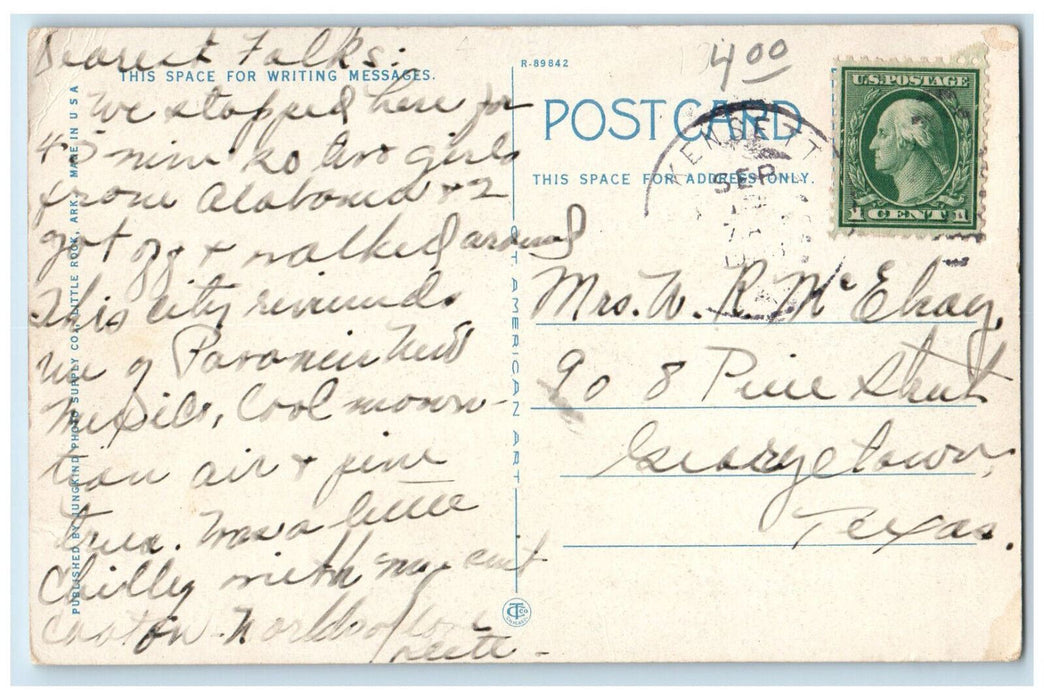 Dearest Folks:
THIS SPACE FOR WRITING MESSAGES.
We stopped here for
45 min so two girls
from Alabama & I
got off & walked around
This city reminds
me of New
Mexico, Cool moun-
tain air & pine
trees. Was a little
chilly with my suit
coat on. Worlds of love
PUBLISHED BY JUNGKIND PHOTO SUPPLY CO., LITTLE ROCK, ARK. MADE IN U S A
C T AMERICAN ART
R-89842
4.00
POST CARD
THIS SPACE FOR ADDRESS ONLY.
SEP
U.S. POSTAGE
1 CENT 1
Mrs. W. R. McElroy,
908 Pine Street
Georgetown,
Texas.
CT CO
CHICAGO